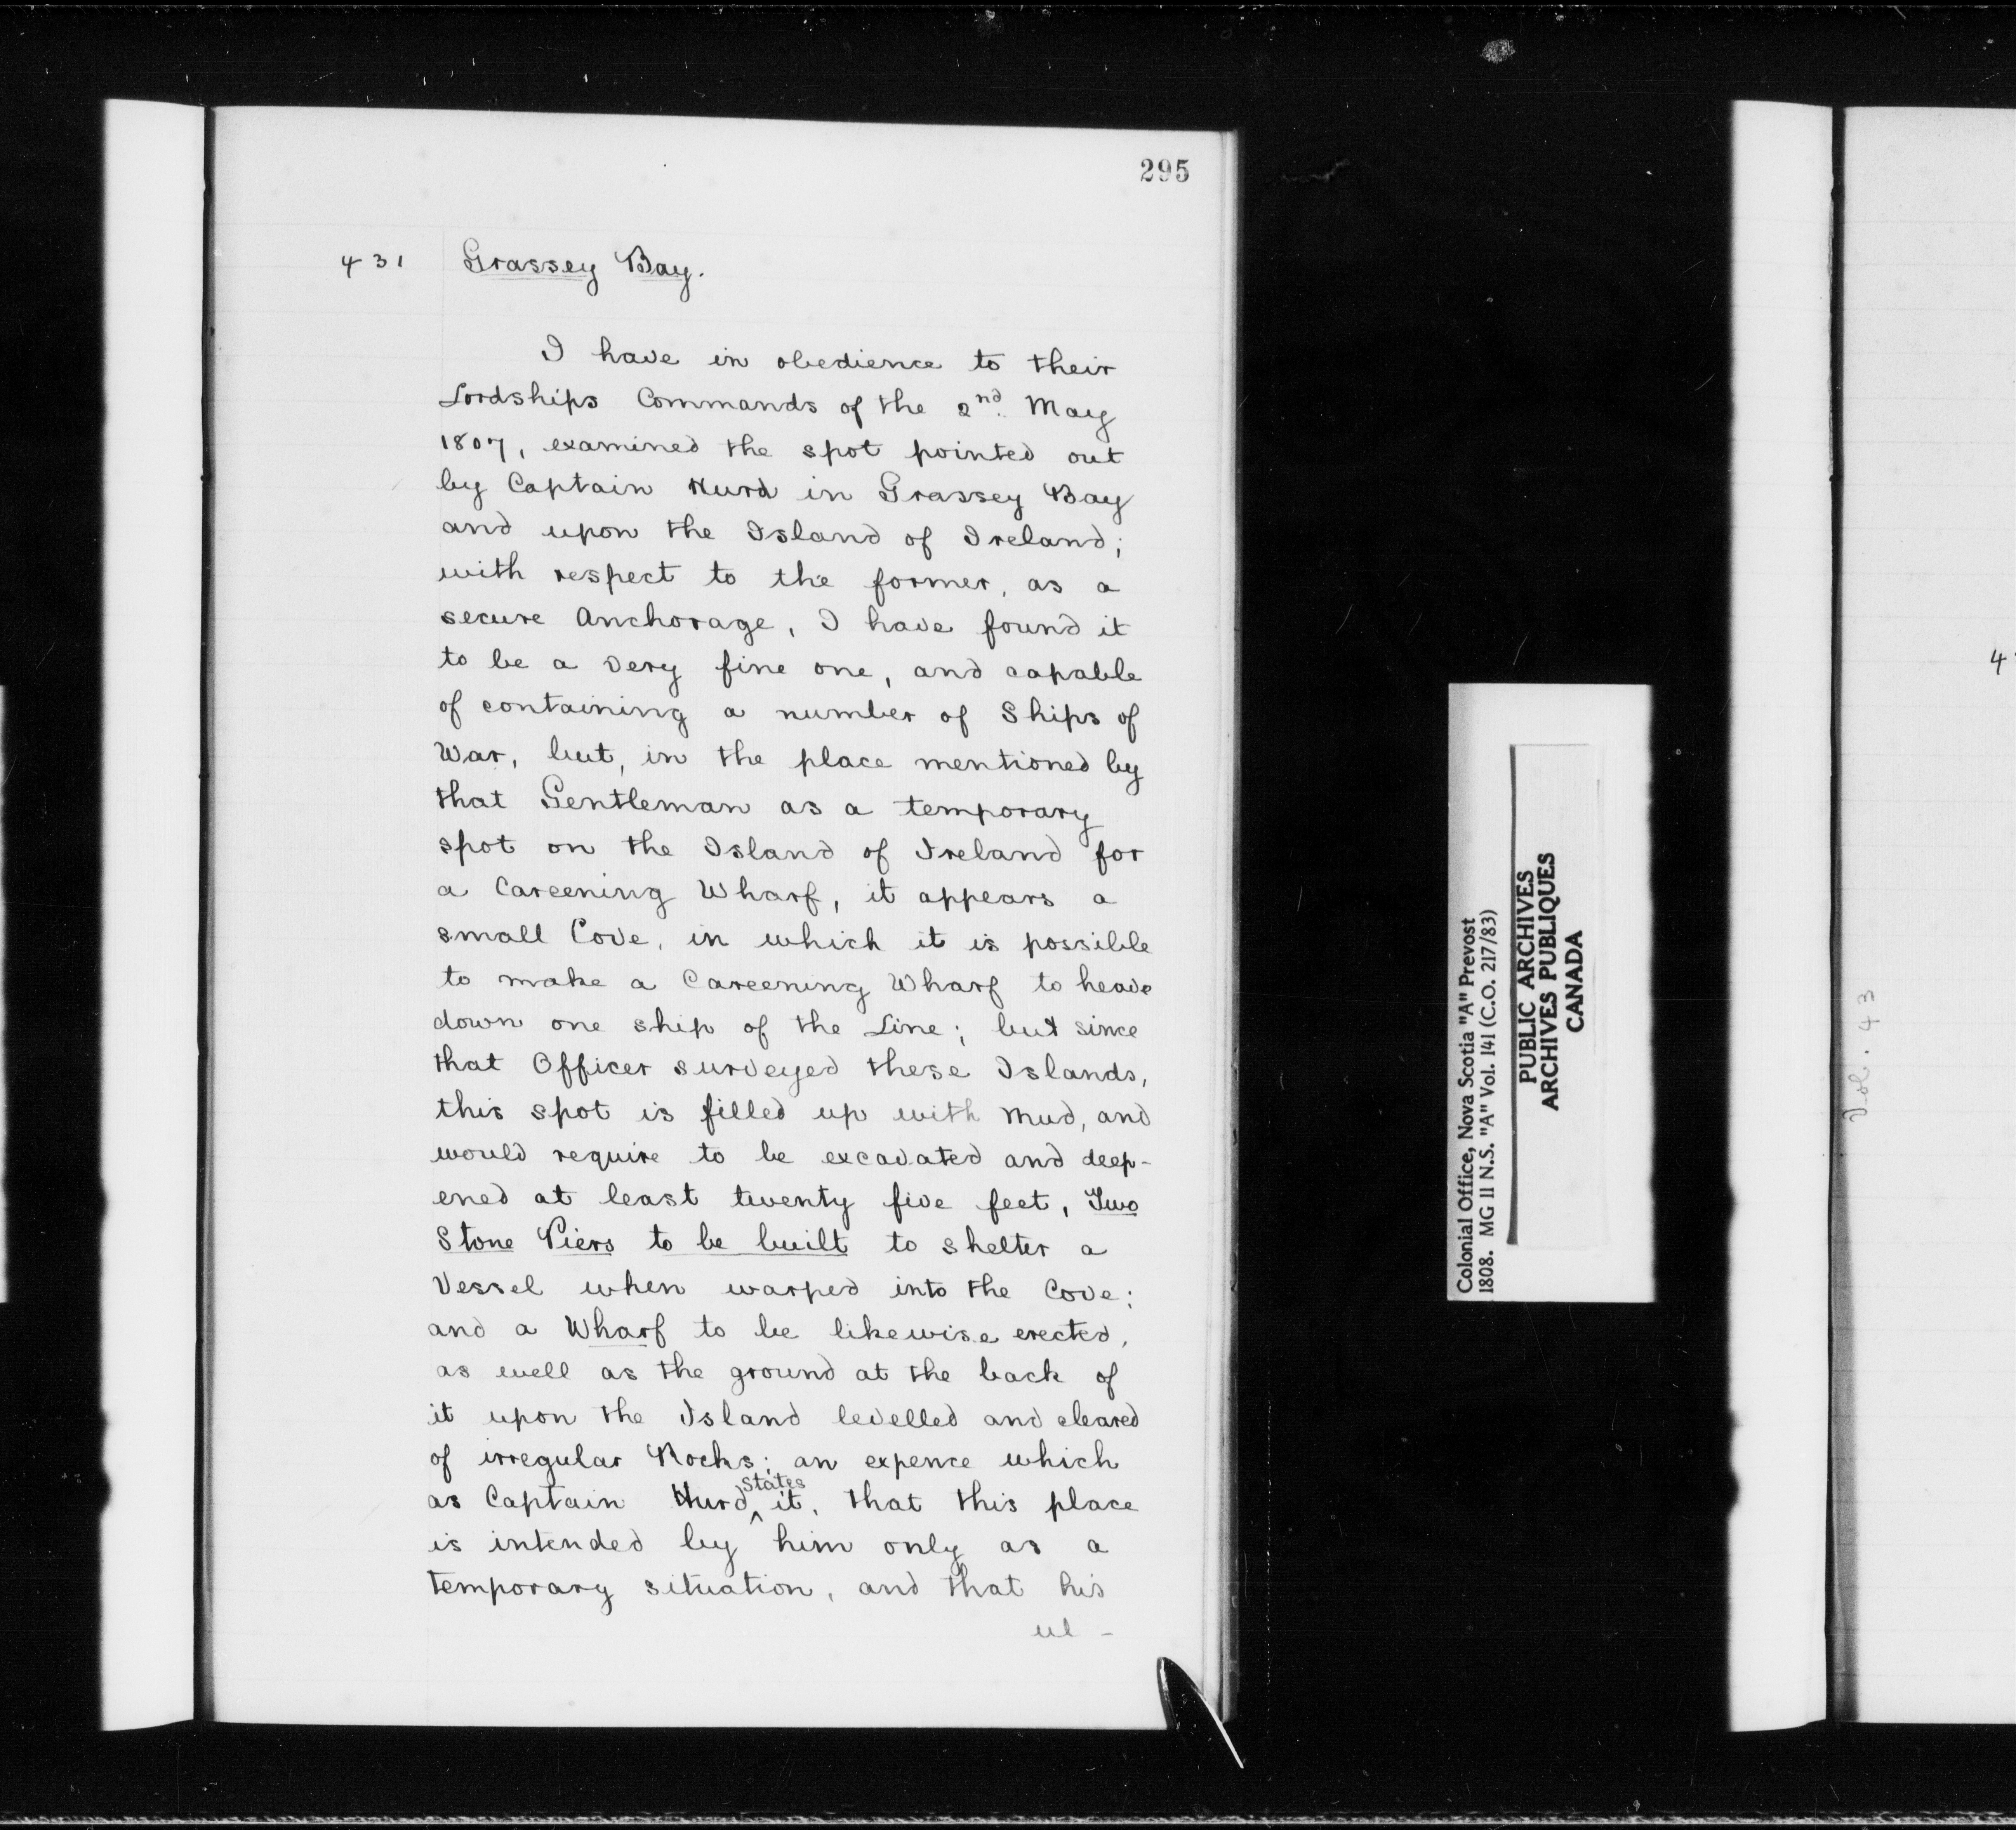 295
431 Grassey Bay.
I have in obedience to their
Lordships Commands of the 2nd. May
1807, examined the spot pointed out
by Captain Hurd in Grassey Bay
and upon the Island of Ireland;
with respect to the former, as a
secure Anchorage, I have found it
to be a very fine one, and capable
of containing a number of Ships of
War, but, in the place mentioned by
that Gentleman as a temporary
spot on the Island of Ireland for
a Careening Wharf, it appears a
small Cove, in which it is possible
to make a Careening Wharf to heave
down one ship of the Line; but since
that Officer surveyed these Islands,
this spot is filled up with Mud, and
would require to be excavated and deep-
ened at least twenty five feet, Two
Stone Piers to be built to shelter a
Vessel when warped into the Cove;
and a Wharf to be likewise erected,
as well as the ground at the back of
it upon the Island levelled and cleared
of irregular Rocks; an expence which
as Captain Hurd ^ States it, that this place
is intended by him only as a
temporary situation, and that his
ul-
Colonial Office, Nova Scotia "A" Prevost
1808. MG 11 N.S. "A" Vol. 141 (C.O. 217/83)
PUBLIC ARCHIVES
ARCHIVES PUBLIQUES
CANADA
Vol. 43
4